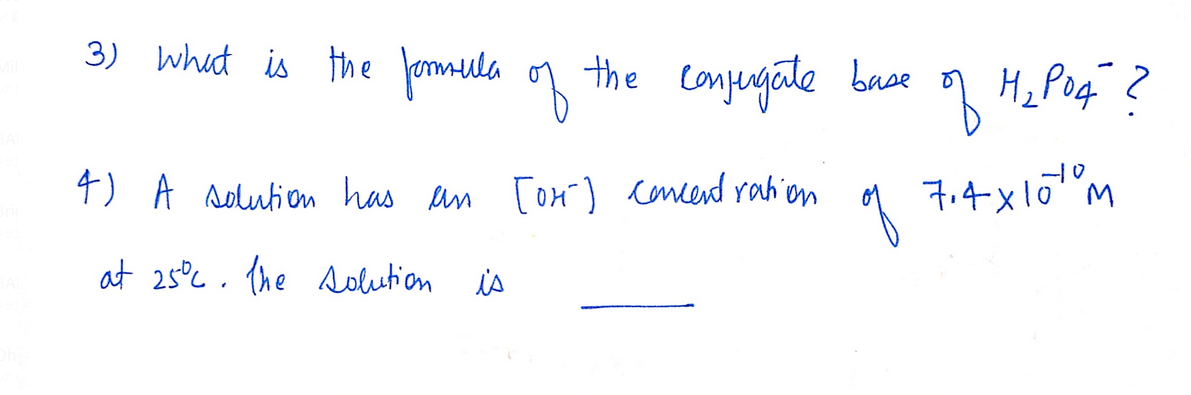 3) What is the formula of the conjugate base of H₂PO₄⁻ ?
4) A solution has an [OH⁻] concentration of 7.4 x 10⁻¹⁰ M
at 25°C. The solution is ____